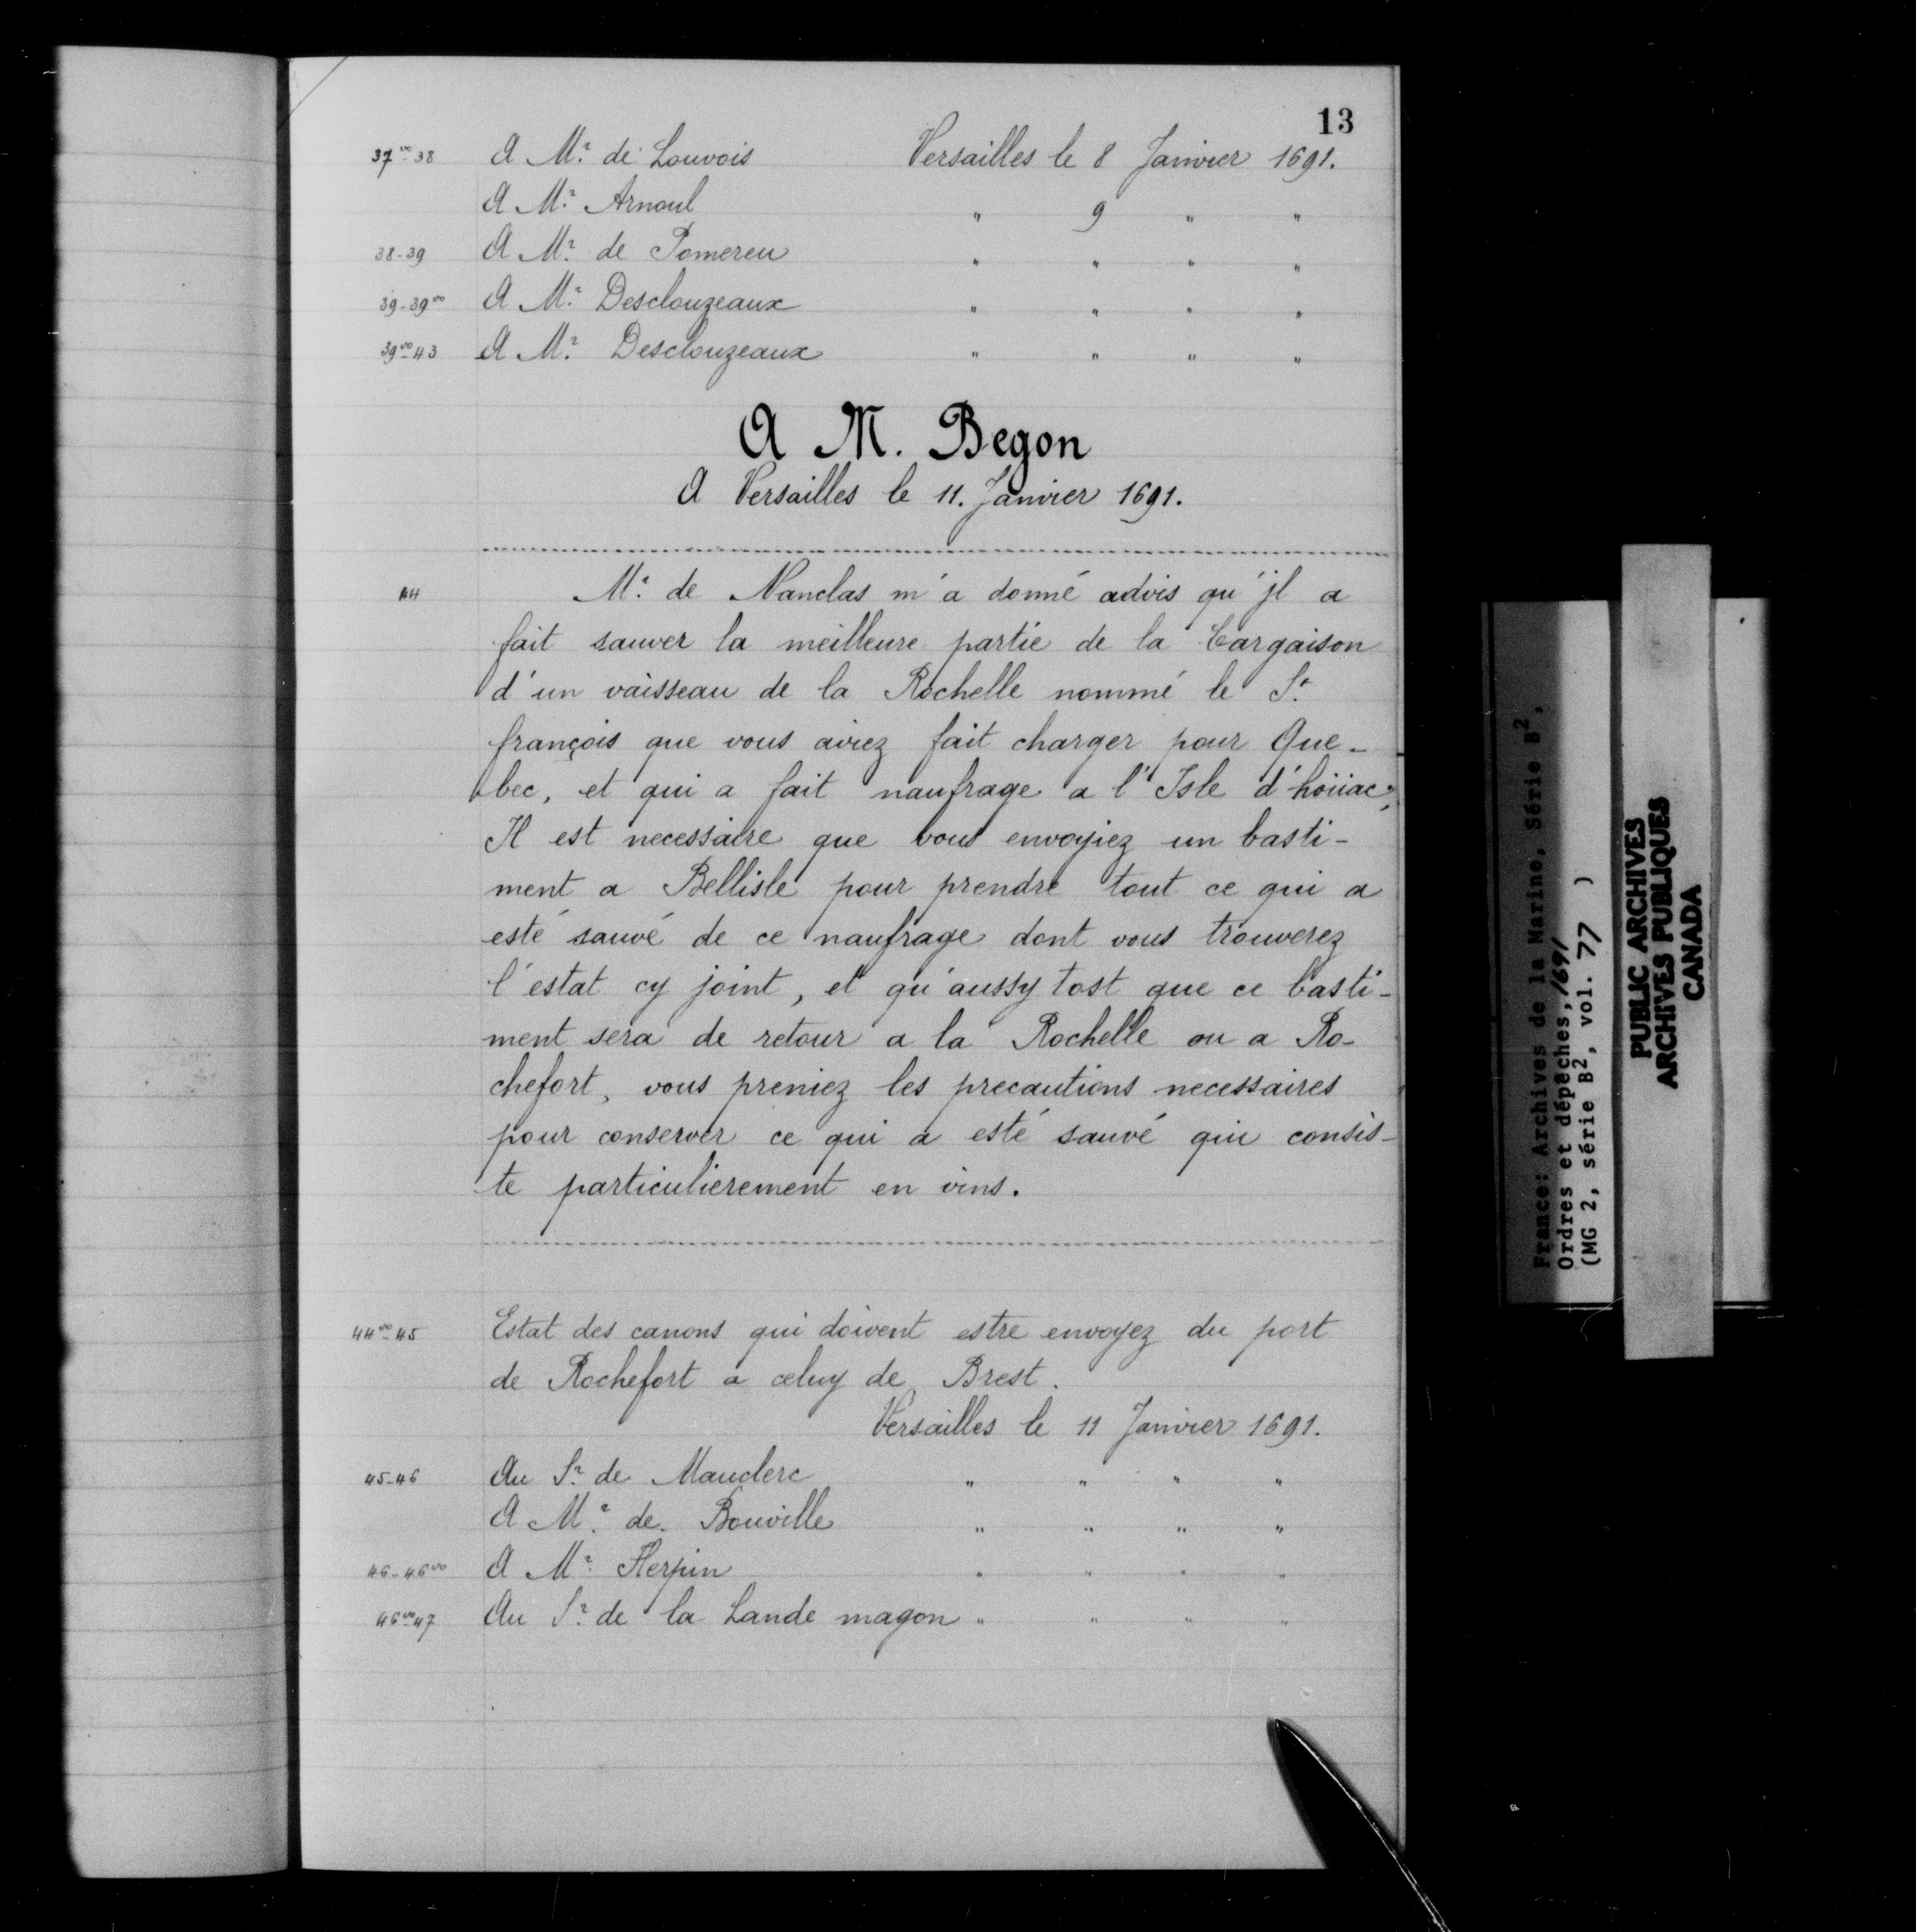 13
37vo-38 A Mr. de Louvois Versailles le 8 Janvier 1691.
A Mr. Arnoul " 9 " "
38-39 A Mr. de Pomereu " " " "
39-39vo A Mr. Desclouzeaux " " " "
39vo-43 A Mr. Desclouzeaux " " " "
A M. Begon
A Versailles le 11. Janvier 1691.
44 Mr. de Nanclas m'a donné advis qu'jl a
fait sauver la meilleure partie de la Cargaison
d'un vaisseau de la Rochelle nommé le St.
françois que vous aviez fait charger pour Que-
bec, et qui a fait naufrage a l'Isle d'hoüac;
Il est necessaire que vous envoyiez un basti-
ment a Bellisle pour prendre tout ce qui a
esté sauvé de ce naufrage dont vous trouverez
l'estat cy joint, et qu'aussy tost que ce basti-
ment sera de retour a la Rochelle ou a Ro-
chefort, vous preniez les precautions necessaires
pour conserver ce qui a esté sauvé qui consis-
te particulierement en vins.
44vo-45 Estat des canons qui doivent estre envoyez du port
de Rochefort a celuy de Brest.
Versailles le 11 Janvier 1691.
45-46 Au Sr. de Mauclerc " " " "
A Mr. de Bouville " " " "
46-46vo A Mr. Herpin " " " "
46vo-47 Au Sr. de la Lande magon " " " "
France: Archives de la Marine, Série B2,
Ordres et dépêches, 1691
(MG 2, série B2, vol. 77 )
PUBLIC ARCHIVES
ARCHIVES PUBLIQUES
CANADA